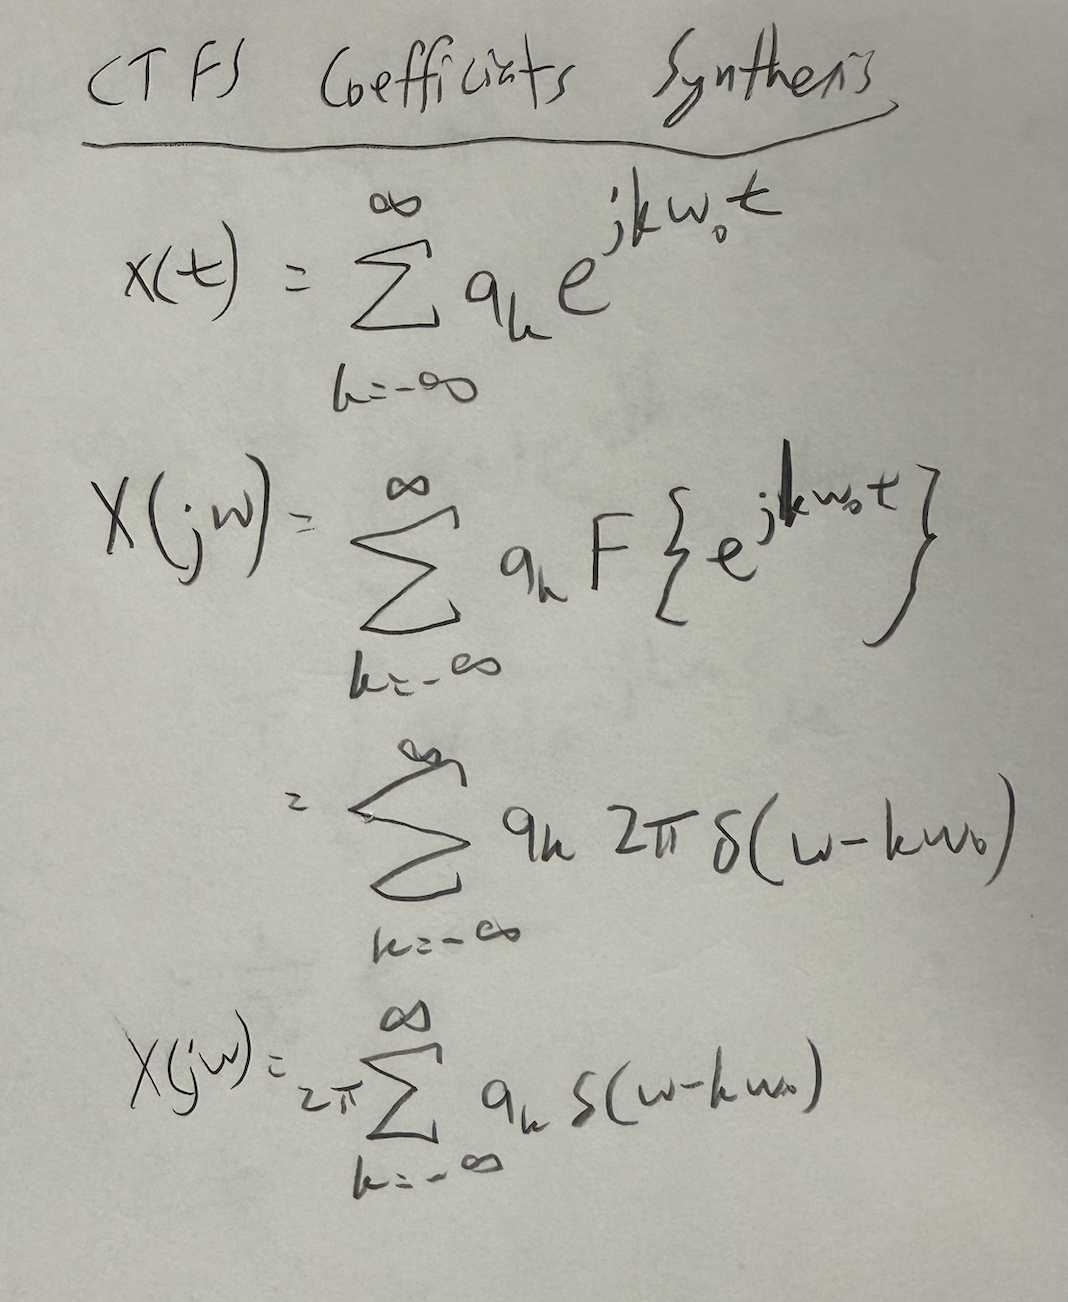 CTFS Coefficients Synthesis
x(t) = ∑_{k=-∞}^{∞} a_k e^{jkω₀t}
X(jω) = ∑_{k=-∞}^{∞} a_k F{e^{jkω₀t}}
= ∑_{k=-∞}^{∞} a_k 2π δ(ω-kω₀)
X(jω) = 2π ∑_{k=-∞}^{∞} a_k δ(ω-kω₀)